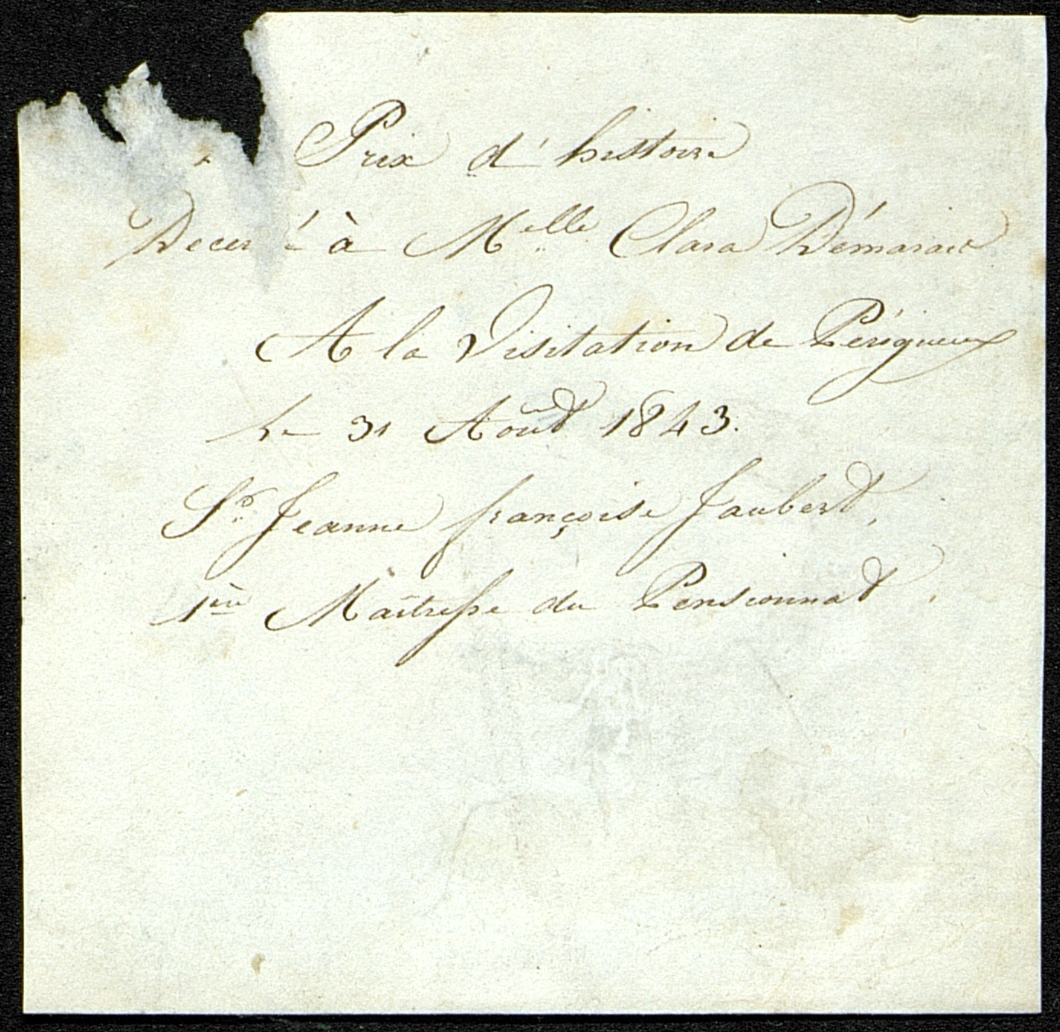 Prix d'histoire
Decer é à Melle Clara
A la Visitation de Périgueux
le 31 Août 1843.
Sr. Jeanne françoise Jaubert,
1ère Maîtresse du Pensionnat.